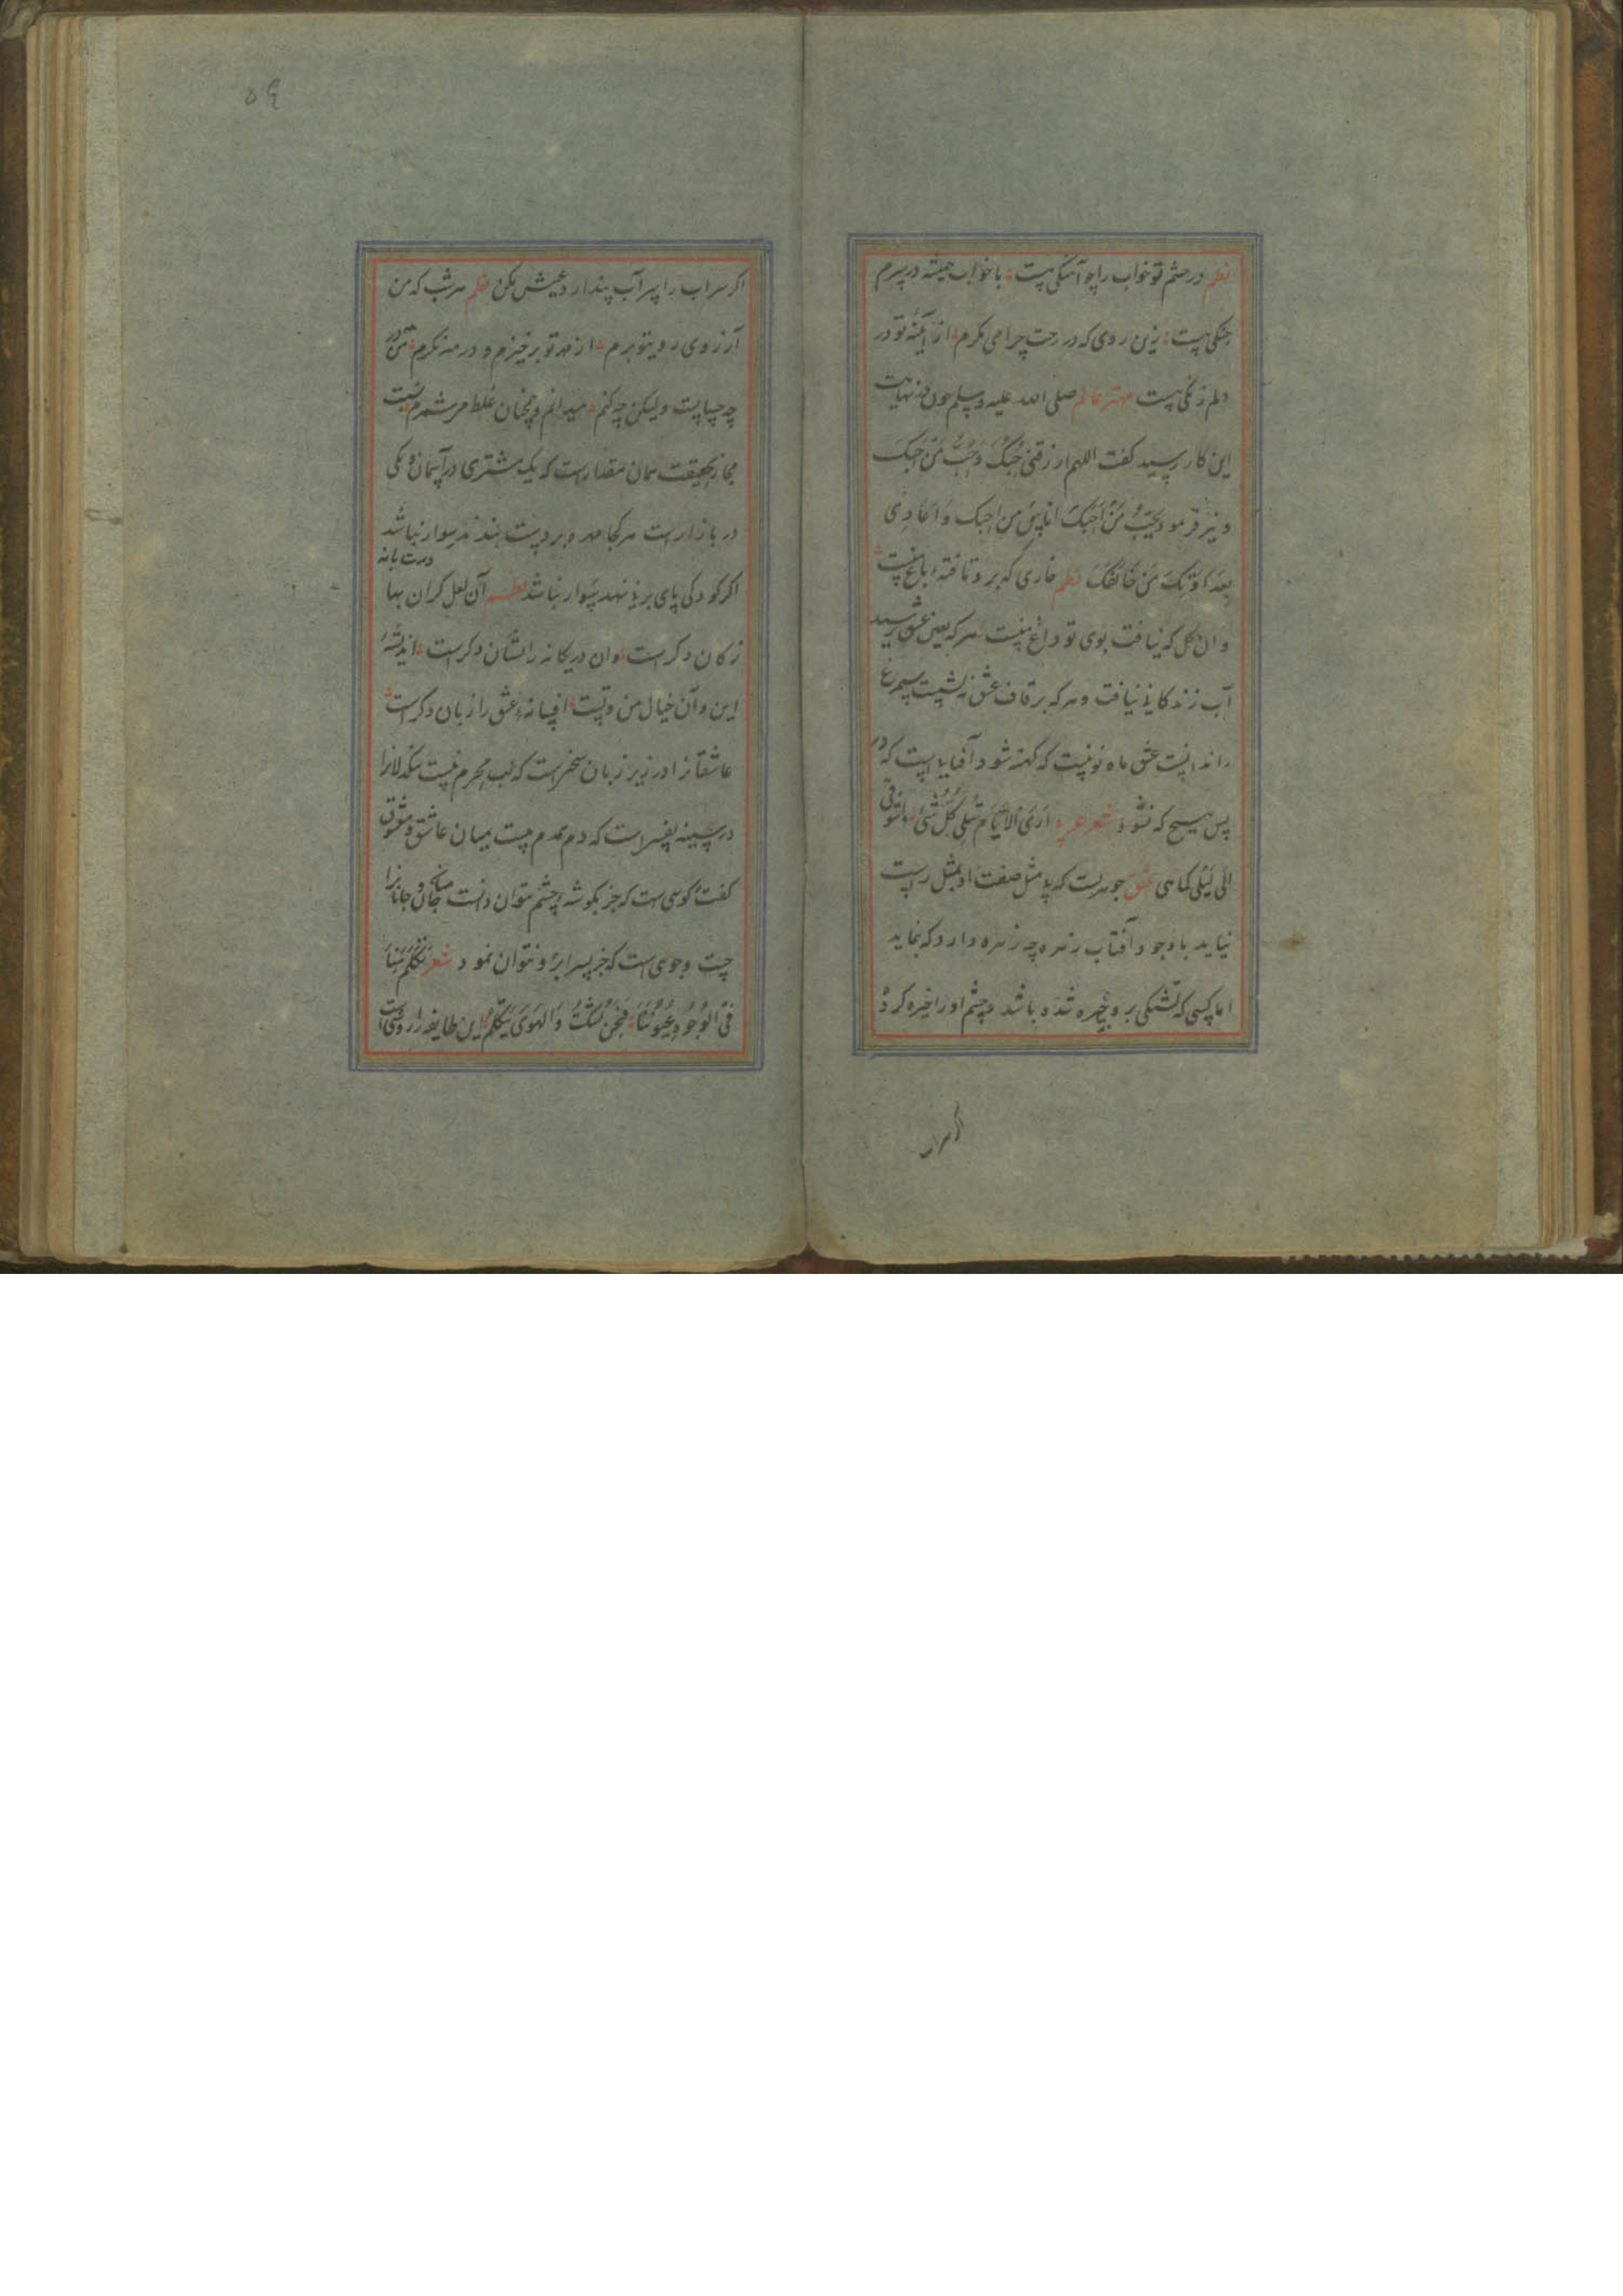 نظم در چشم تو خواب را چو آهنگی هست ؛ با خواب همیشه در سرم
جنگی هست ؛ زین روی که در رخت چرا می نگرم ؛ از آینهٔ تو در
دلم زنگی هست مهتر عالم صلی الله علیه وسلم چون بنهایت
این کار رسید کفت اللهم ارزقنی حُبَّکَ وَحُبَّ مَنْ اَحَبَّکَ
و نیز فرمود بِحُبِّکَ مَنْ اَحَبَّکَ الناس من احبک وَ اُعَادِی
بعداوتک مَنْ خَالَفَکَ نظم خاری که برو تافتهٔ باغ منست
وان کل که نیافت بوی تو داغ منست ؛ هر که بعین عشق نرسید
آب زندکانی نیافت و هر که بر قاف عشق ننشست سیمرغ
را ندانست عشق ماه نو نیست که کهنه شود آفتابی است که در
پس هیچ که نشود شعر عربیه اَرَی الاَیَّامَ تُبْلِی کُلَّ شَیْءٍ ؛ وَشَوْقِی
اِلَی لَیْلَی کما هی عشق جوهریست که بی مثل صفت او بمثل راست
نیاید با وجود آفتاب زهره چه زهره دارد که بنماید
اما کسی که تشنکی برو خیره شده باشد و چشم او را خیره کرد
اکر سراب
۵۶
اکر سراب را پر آب پندارد عیبش مکن نظم هر شب که من
آرزوی روی تو برم ؛ از مهر تو برخیزم و در مه نکرم ؛ مَن
چه حسابست ولیکن چه کنم ؛ میدانم و همچنان غلط می شمرم ؛ نسبت
مجاز بحقیقت همان مقدارست که یک مشتری در آسمان و یکی
در بازارست هر کجا مهره بر دست بندند در سوار نباشد
درست بانه
اکر کودکی پای بر نی نهد سوار نباشد نظم آن لعل کران بها
زکان دکرست ؛ وان در یکانه را نشان دکرست ؛ اندیشهٔ
این و آن خیال من و تست ؛ افسانهٔ عشق را زبان دکرست
عاشقانرا در زیر زبان سخنیست که لب محرم نیست تنکدلانرا
در سینه نفسیست که دم همدم نیست میان عاشق و معشوق
کفت و کویی است که جز بکوشهٔ چشم نتوان دانست میان جان و جانانرا
جست وجوی است که جز بسر ابرو نتوان نمود شعر تَکَلَّمَ مِنَّا
فِی الْوُجُوهِ عُیُونُنَا ؛ فَنَحْنُ سُکُوتٌ وَالْهَوَی یَتَکَلَّمُ ؛ این طایفه را روشی است